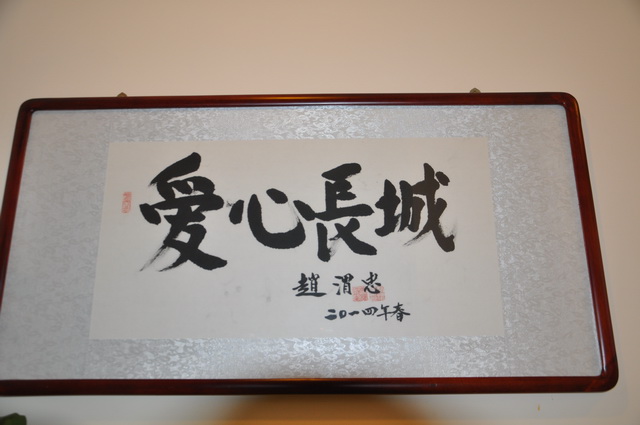 爱心長城
趙渭忠
二〇一四年春